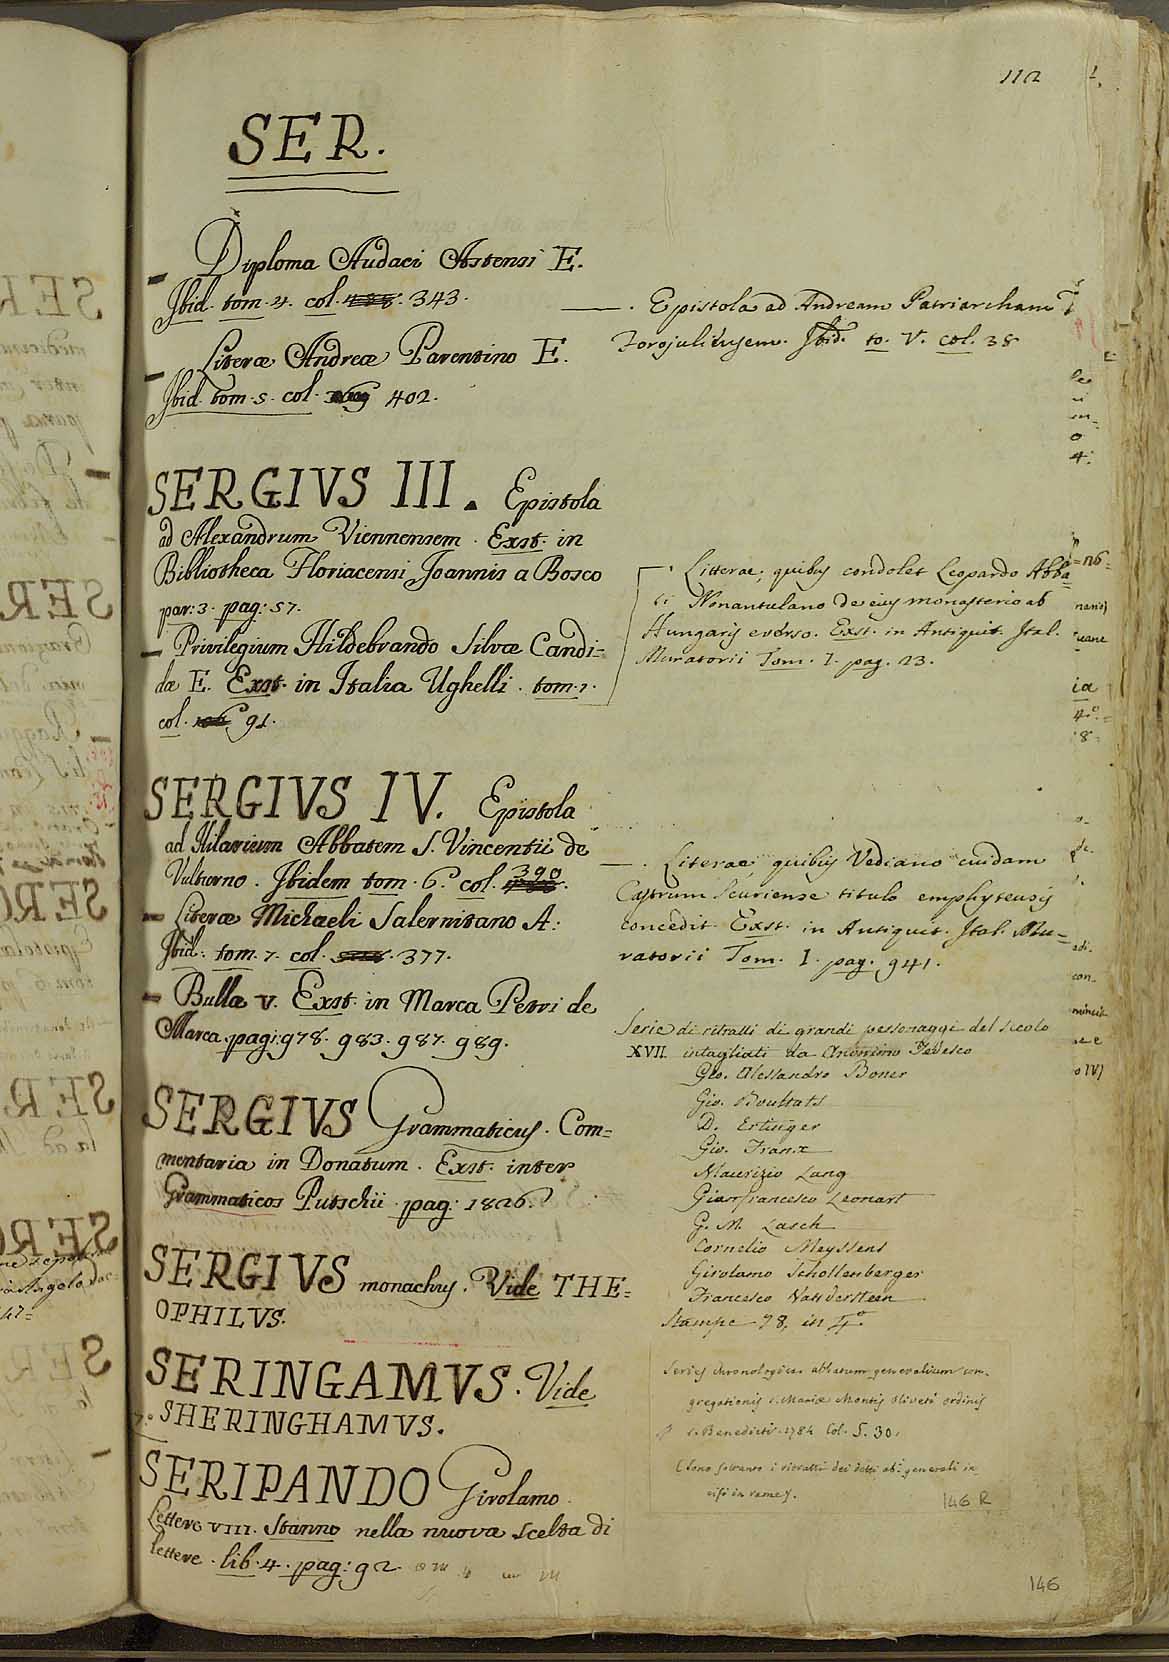 112
SER.
– Diploma Audaci Astensi E.
Ibid. tom. 4. col. 343.
– Literæ Andreæ Parentino E.
Ibid. tom. 5. col. 402.
SERGIVS III. Epistola
ad Alexandrum Viennensem. Exst. in
Bibliotheca Floriacensi Joannis a Bosco
par: 3. pag: 57.
– Privilegium Hildebrando Silvæ Candi=
dæ E. Exst. in Italia Ughelli. tom. 1.
col. 91.
SERGIVS IV. Epistola
ad Hilarium Abbatem S. Vincentii de
Vulturno. Ibidem tom. 6. col. 390.
– Literæ Michaeli Salernitano A:
Ibid: tom. 7. col. 377.
– Bullæ v. Exst. in Marca Petri de
Marca pag: 978. 983. 987. 989.
SERGIVS Grammaticus. Com=
mentaria in Donatum. Exst. inter
Grammaticos Putschii pag: 1826.
SERGIVS monachus. Vide THE=
OPHILVS.
SERINGAMVS. Vide
SHERINGHAMVS.
SERIPANDO Girolamo
Lettere VIII. Stanno nella nuova scelta di
lettere. lib. 4. pag: 92.
—. Epistola ad Andream Patriarcham
Forojuliensem. Ibid. to. V. col. 38
Litterae, quibus condolet Leopardo Abba=
ti Nonantulano de eius monasterio ab
Hungaris everso. Exst. in Antiquit. Ital.
Muratorii Tom. I. pag. 23.
—. Literae quibus Vediano cuidam
Castrum Scuriense titulo emphyteusis
concedit Exst. in Antiquit. Ital. Mu=
ratorii Tom. I. pag. 941.
Serie di ritratti di grandi personaggi del secolo
XVII. intagliati da Anonimo Tedesco
Gio. Alessandro Boner
Gio. Bouttats
D. Ertinger
Gio. Franx
Maurizio Lang
Gianfrancesco Leonart
G. M. Lasch
Cornelio Meyssens
Girolamo Schollenberger
Francesco Vandersteen
Stampe 98. in 4.º
Series chronologica abbatum generalium con-
gregationis S. Mariæ Montis Oliveti ordinis
S. Benedicti. 1784 Col. S. 30.
(Sono soltanto i ritratti dei detti ab: generali in
cisi in rame).
146 R
146